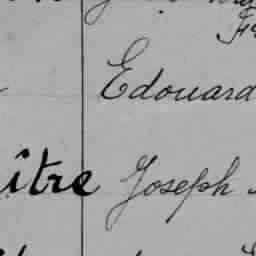 Edouard
ître Joseph